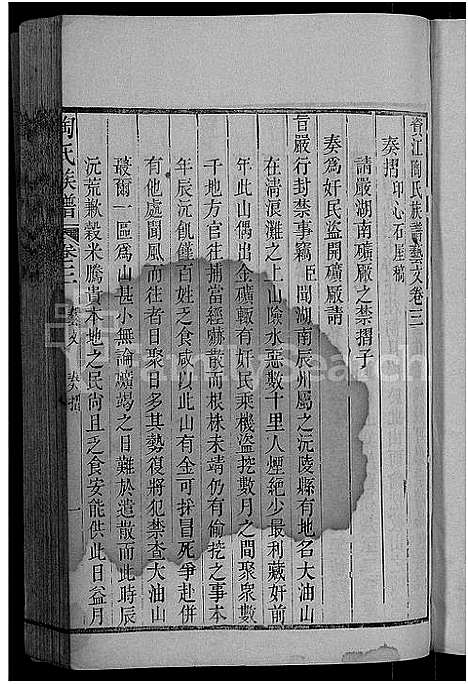 資江陶氏族譜藝文卷三
奏摺印心石屋稿
請嚴湖南礦厰之禁摺子
奏爲奸民盜開礦厰請
旨嚴行封禁事竊臣聞湖南辰州屬之沅陵縣有地名大油山
在淸浪灘之上山險水惡數十里人煙絶少最利藏奸前
年此山偶出金礦輙有奸民乘機盜挖數月之間聚衆數
千地方官往捕當經嚇散而根株未靖仍有偷挖之事本
年辰沅飢饉百姓乏食咸以此山有金可採冒死爭赴併
有他處聞風而往者日聚日多其勢復將犯禁查大油山
蕞爾一區爲山甚小無論礦竭之日難於遣散而此時辰
沅荒歉穀米騰貴本地之民尙且乏食安能供此日益月
陶氏族譜
卷三
藝文 奏摺
一
FamilySearch